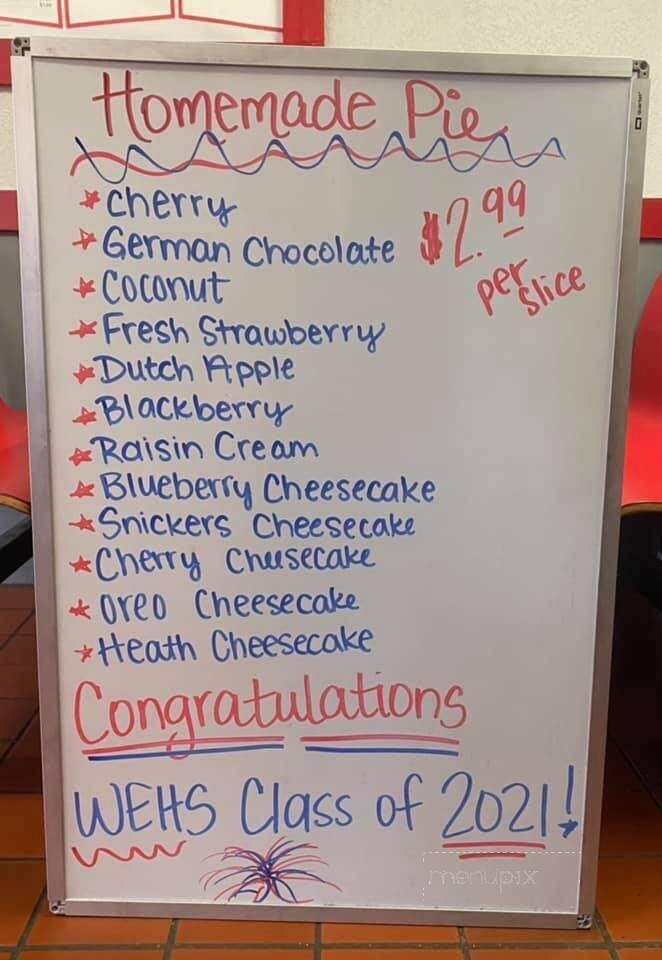 Homemade Pie
Cherry
German Chocolate
$2.99
per slice
Coconut
Fresh Strawberry
Dutch Apple
Blackberry
Raisin Cream
Blueberry Cheesecake
Snickers Cheesecake
Cherry Cheesecake
Oreo Cheesecake
Heath Cheesecake
Congratulations
WEHS Class of 2021!
menupix